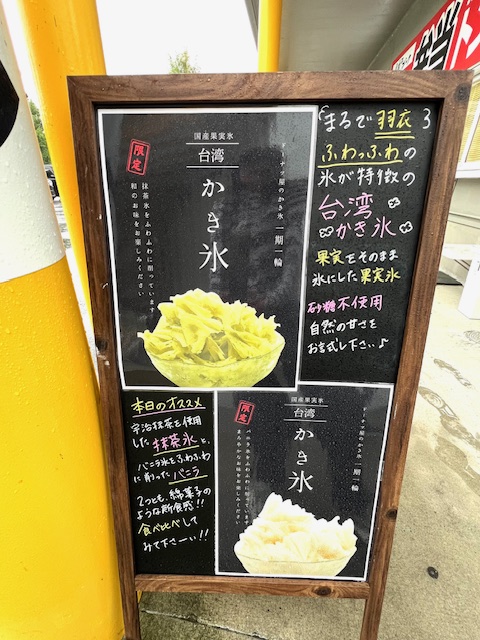 国産果実氷
台湾
かき氷
限定
ドーナツ屋のかき氷 一期一輪
抹茶氷をふわふわに削っています。
和のお味をお楽しみください
まるで羽衣
ふわっふわの
氷が特徴の
台湾
かき氷
果実をそのまま
氷にした果実氷
砂糖不使用
自然の甘さを
お試し下さい♪
本日のオススメ
宇治抹茶を使用
した抹茶氷と、
バニラ氷をふわふわ
に削ったバニラ
2つとも、綿菓子の
ような新食感!!
食べ比べして
みて下さーい!!
国産果実氷
台湾
かき氷
限定
ドーナツ屋のかき氷 一期一輪
バニラ氷をふわふわに削っています。
まろやかなお味をお楽しみください